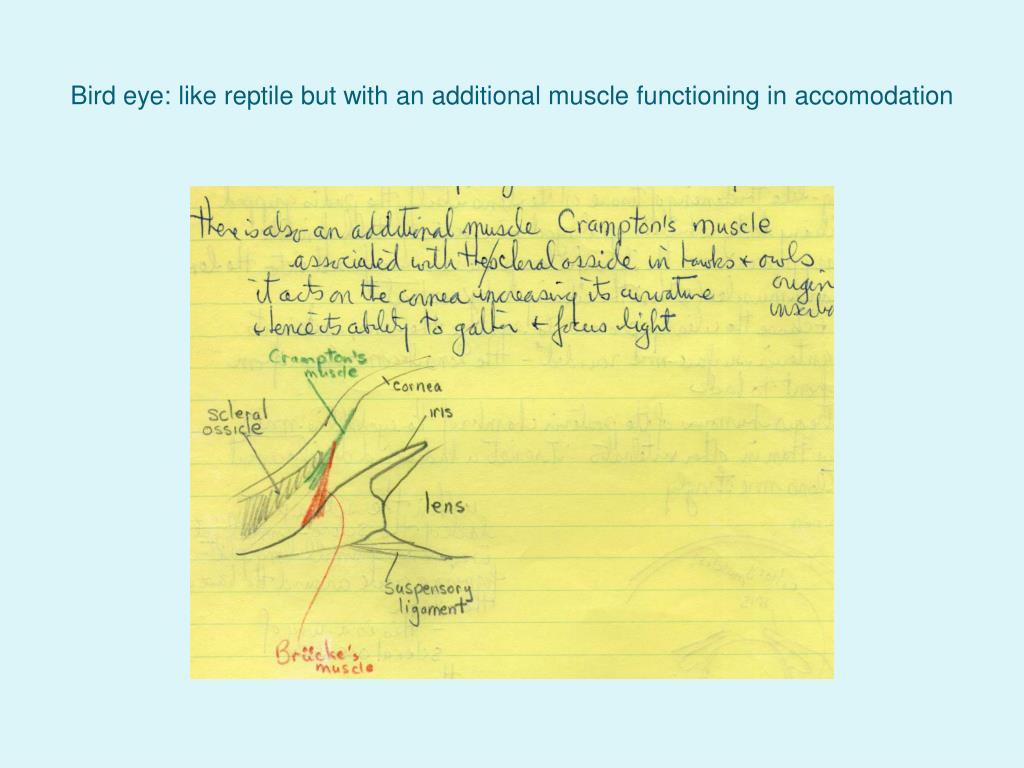 Bird eye: like reptile but with an additional muscle functioning in accomodation
There is also an additional muscle Crampton's muscle
associated with the scleral ossicle in hawks + owls
it acts on the cornea increasing its curvature
hence its ability to gather + focus light
origin
Crampton's
muscle
cornea
iris
scleral
ossicle
lens
suspensory
ligament
Brücke's
muscle